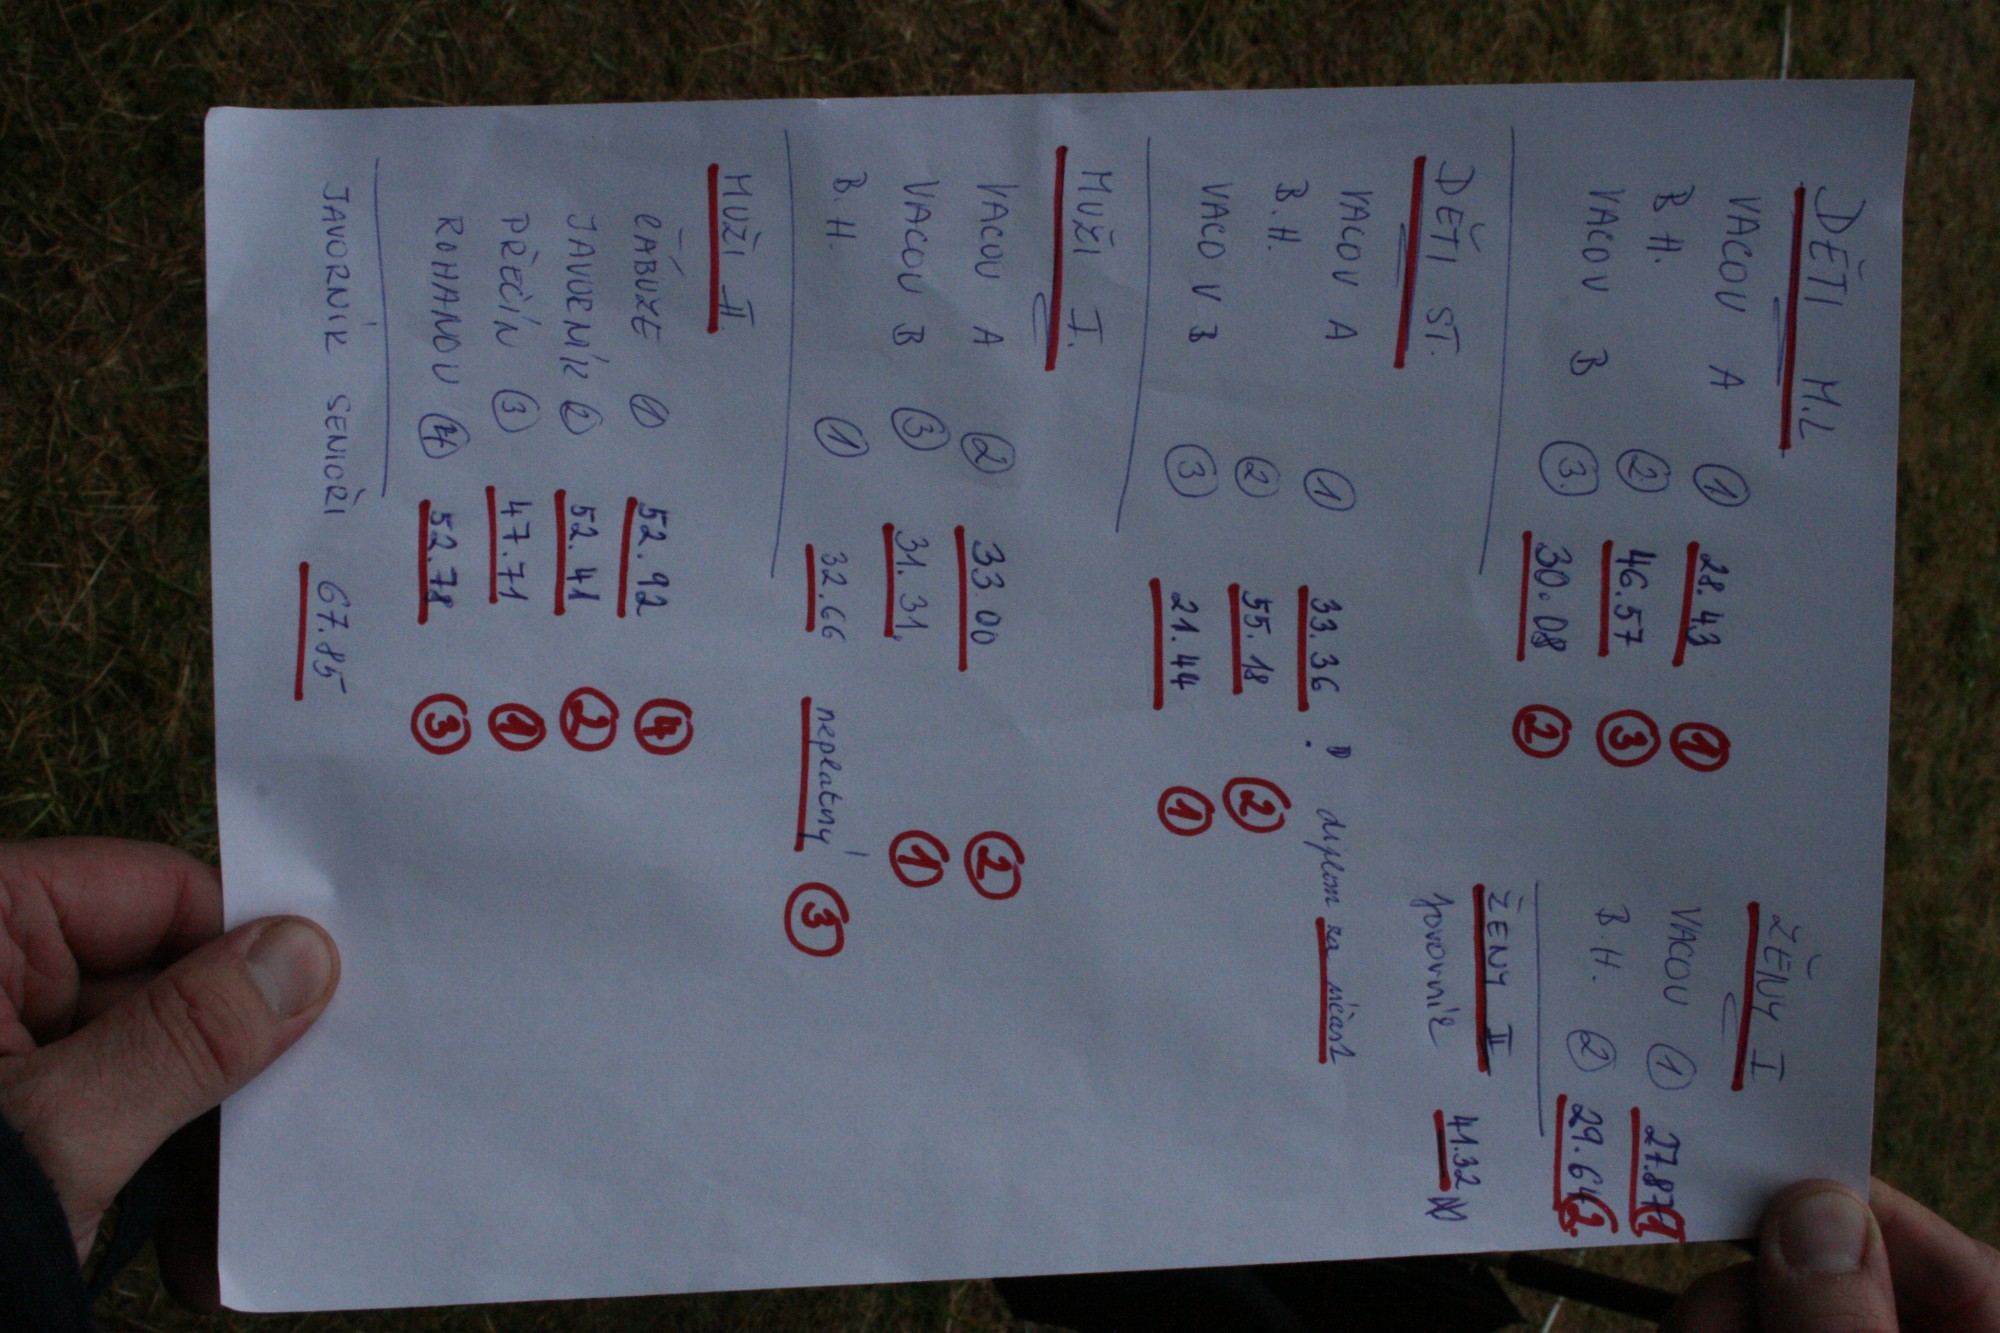 DĚTI ML.
VACOV A 1 28.43 1
B.H. 2 46.57 3
VACOV B 3. 30.08 2
DĚTI ST.
VACOV A 1 33.36 ? diplom za účast
B.H. 2 55.18 2
VACOV B 3 21.44 1
MUŽI I.
VACOV A 2 33.00 2
VACOV B 3 31.31, 1
B.H. 1 32.66 neplatný 3
MUŽI II.
ČÁBUZE 1 52.92 4
JAVORNÍK 2 52.41 2
PŘEČÍN 3 47.71 1
ROHANOV 4 52.78 3
JAVORNÍK SENIOŘI 67.85
ŽENY I
VACOV 1 27.87 1
B.H. 2 29.64 2.
ŽENY II
Javorník 41.32